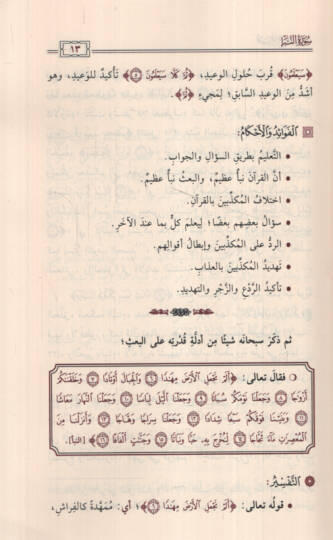 سُورَةُ النَّبَإِ
١٣
﴿سَيَعْلَمُونَ﴾ قُربَ حُلولِ الوعيدِ، ﴿ثُمَّ كَلَّا سَيَعْلَمُونَ ٥﴾ تأكيدٌ للوَعيدِ، وهو
أشدُّ مِنَ الوعيدِ السَّابقِ؛ لِمَجيءِ ﴿ثُمَّ﴾.
الفَوَائِدُ وَالأَحْكَامُ:
• التَّعليمُ بطريقِ السؤالِ والجوابِ.
• أنَّ القرآنَ نبأٌ عظيمٌ، والبعثُ نبأٌ عظيمٌ.
• اختلافُ المكذِّبينَ بالقرآنِ.
• سؤالُ بعضِهم بعضًا؛ لِيعلمَ كلٌّ بما عندَ الآخَرِ.
• الردُّ على المكذِّبينَ وإبطالُ أقوالِهم.
• تهديدُ المكذِّبينَ بالعذابِ.
• تأكيدُ الرَّدْعِ والزَّجْرِ والتهديدِ.
ثم ذكَرَ سبحانَه شيئًا مِن أدلَّةِ قُدْرتِه على البعثِ؛
فقال تعالى: ﴿أَلَمْ نَجْعَلِ الْأَرْضَ مِهَٰدًا ٦ وَالْجِبَالَ أَوْتَادًا ٧ وَخَلَقْنَٰكُمْ
أَزْوَٰجًا ٨ وَجَعَلْنَا نَوْمَكُمْ سُبَاتًا ٩ وَجَعَلْنَا الَّيْلَ لِبَاسًا ١٠ وَجَعَلْنَا النَّهَارَ مَعَاشًا
١١ وَبَنَيْنَا فَوْقَكُمْ سَبْعًا شِدَادًا ١٢ وَجَعَلْنَا سِرَاجًا وَهَّاجًا ١٣ وَأَنزَلْنَا مِنَ
الْمُعْصِرَٰتِ مَآءً ثَجَّاجًا ١٤ لِّنُخْرِجَ بِهِ حَبًّا وَنَبَاتًا ١٥ وَجَنَّٰتٍ أَلْفَافًا ١٦﴾ [النبأ].
التَّفْسِيرُ:
• قولُه تعالى: ﴿أَلَمْ نَجْعَلِ الْأَرْضَ مِهَٰدًا ٦﴾؛ أي: مُمَهَّدةً كالفِراشِ،